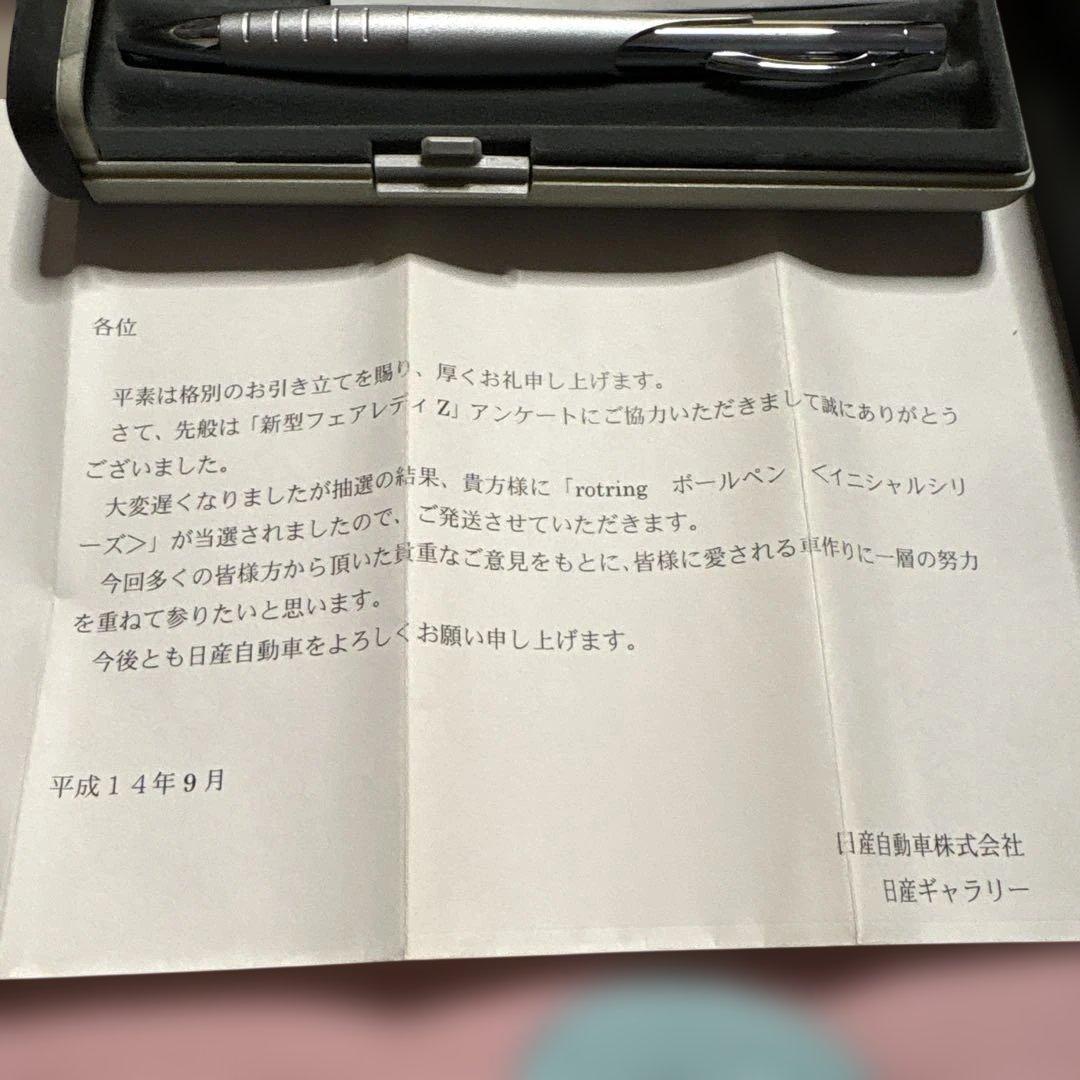 各位
平素は格別のお引き立てを賜り、厚くお礼申し上げます。
さて、先般は「新型フェアレディZ」アンケートにご協力いただきまして誠にありがとう
ございました。
大変遅くなりましたが抽選の結果、貴方様に「rotring　ボールペン　＜イニシャルシリ
ーズ＞」が当選されましたので、ご発送させていただきます。
今回多くの皆様方から頂いた貴重なご意見をもとに、皆様に愛される車作りに一層の努力
を重ねて参りたいと思います。
今後とも日産自動車をよろしくお願い申し上げます。
平成１４年９月
日産自動車株式会社
日産ギャラリー